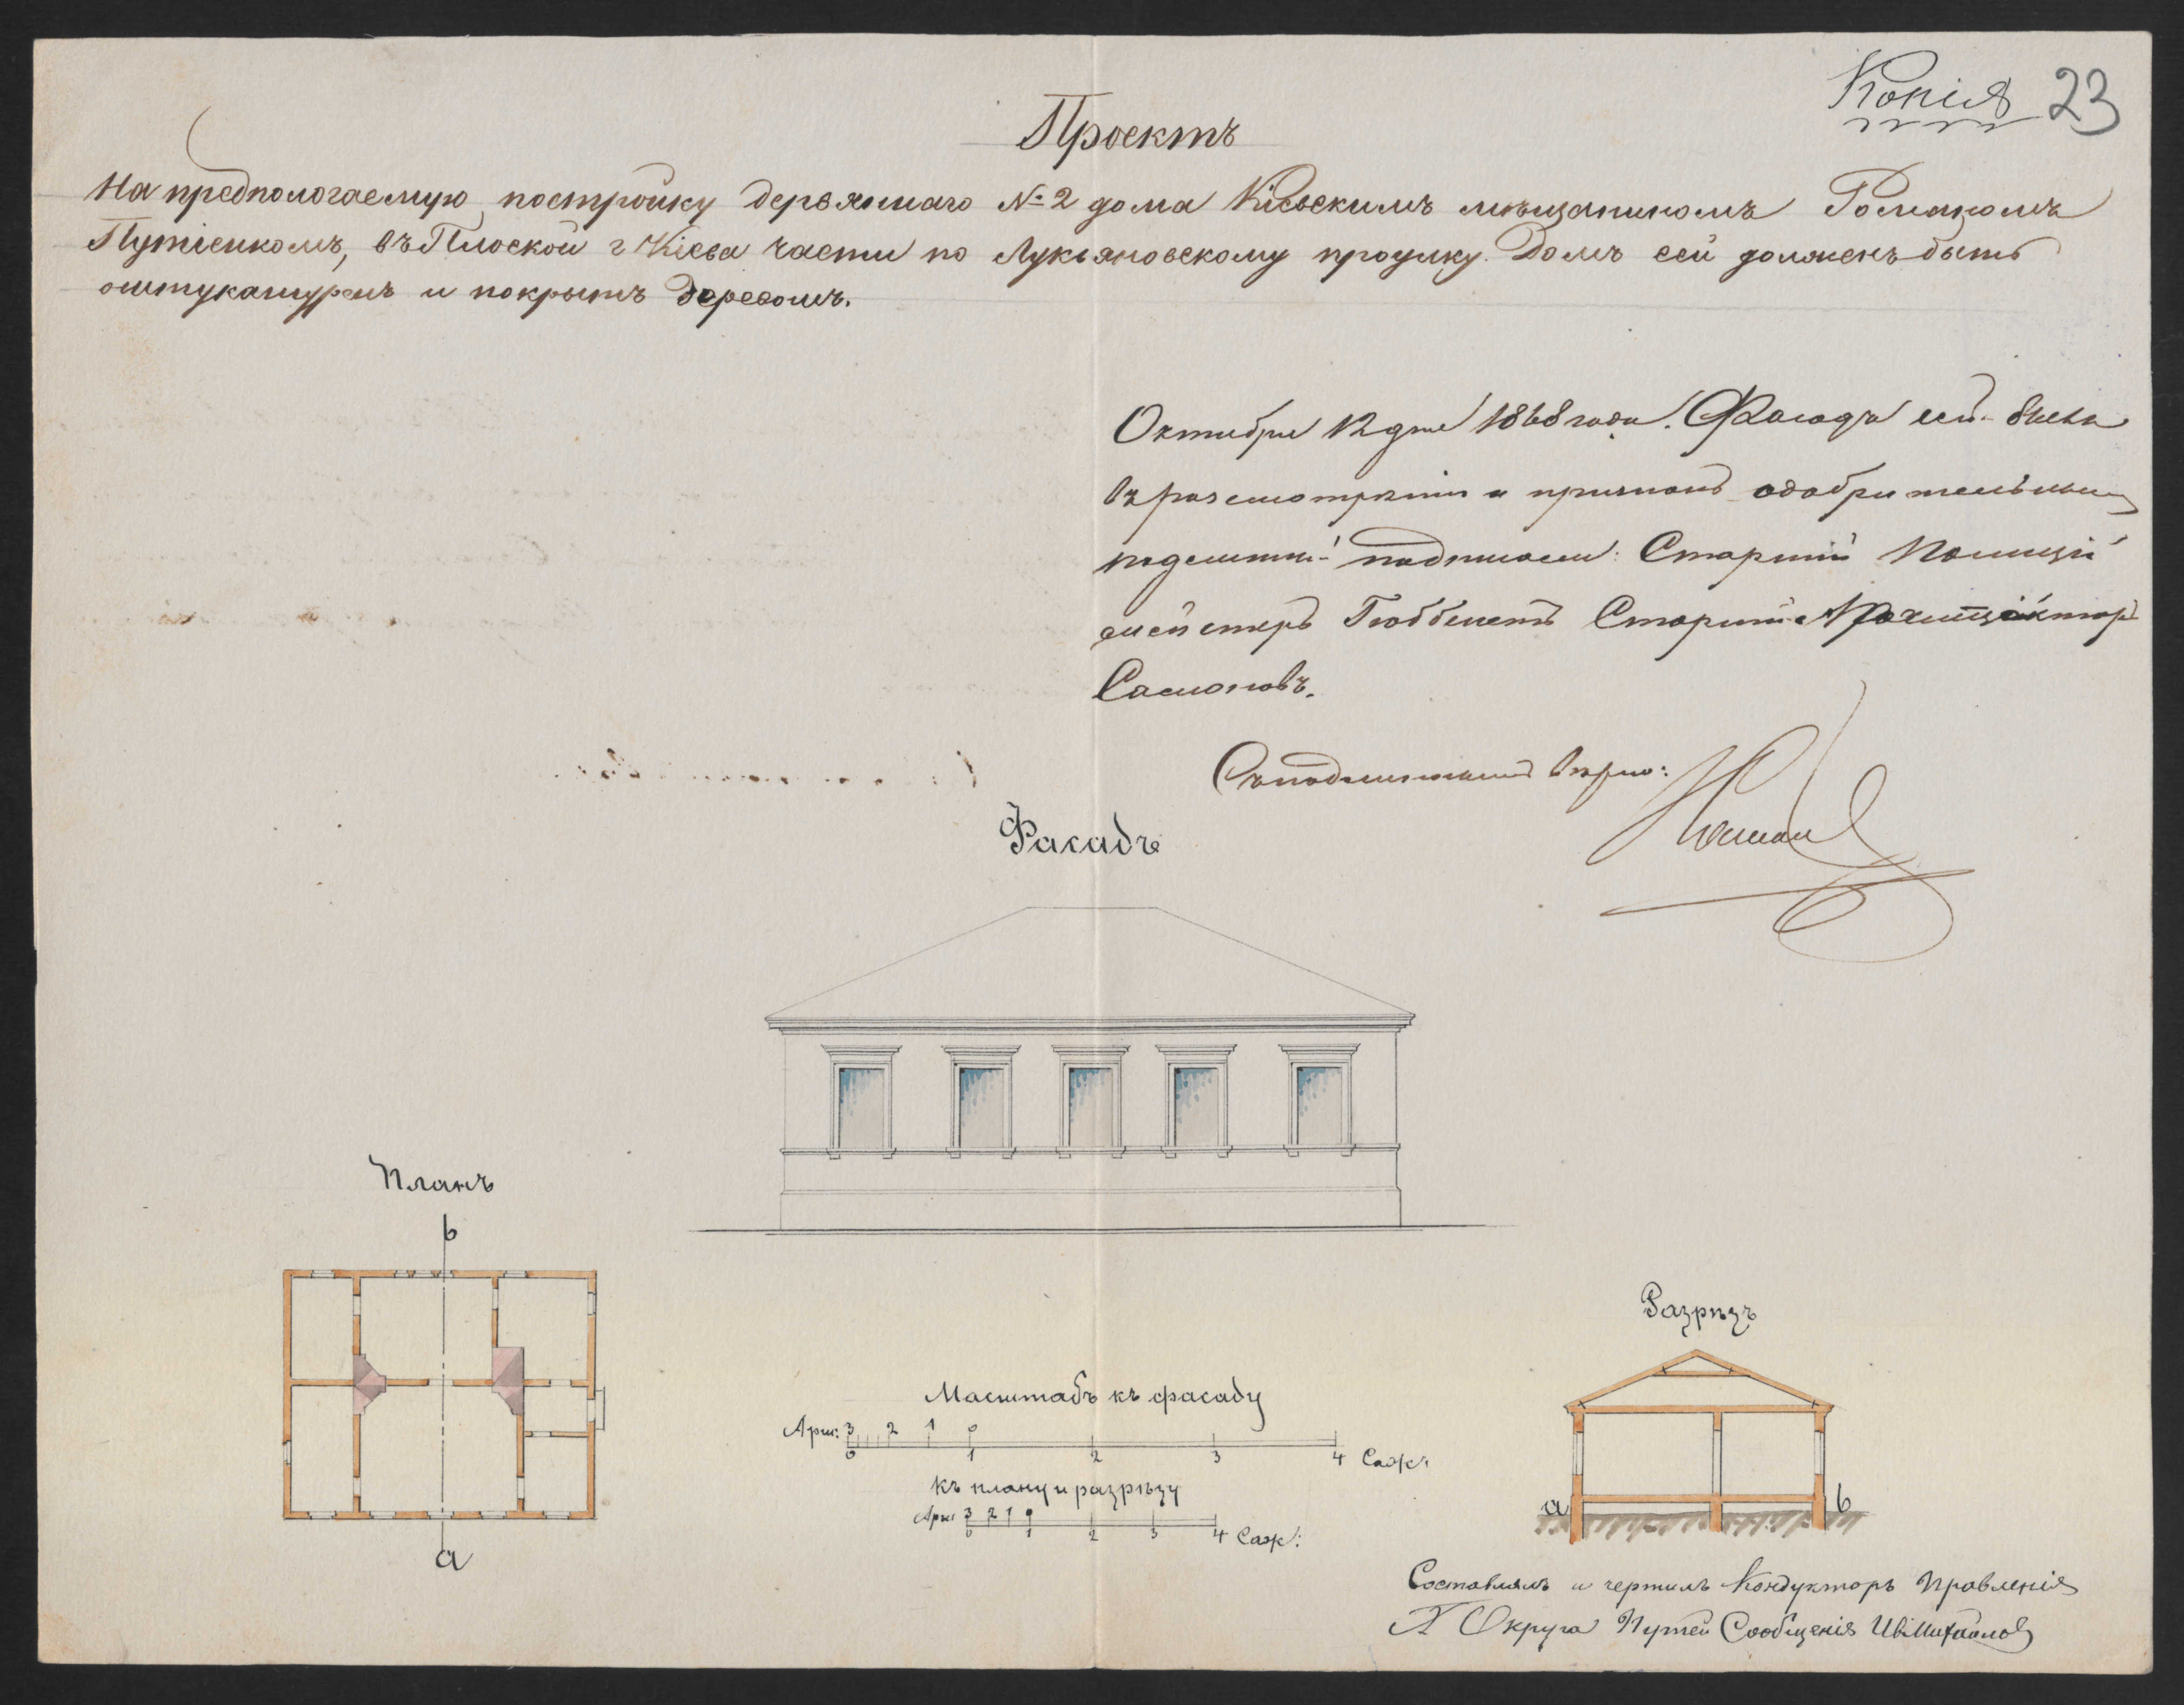 Копія 23
Проектъ
На предпологаемую постройку деревяннаго № 2 дома Кіевскимъ мѣщаниномъ Романомъ
Путіенкомъ, въ Плоской г Кіева части по Лукьяновскому проулку. Домъ сей долженъ быть
оштукатуренъ и покрытъ деревомъ.
Октября 12 дня 1868 года. Фасадъ сей былъ
въ разсмотреніи и признанъ одобрительнымъ
подлинный подписали: Старшій Полицій
мейстеръ Гюббенетъ Старшій Архитекторъ
Самоновъ.
Съ подлиннымъ вѣрно:
Фасадъ
Планъ
b
a
Разрѣзъ
a b
Масштабъ къ фасаду
Арш: 3 2 1 0
0 1 2 3 4 Саж:
къ плану и разрѣзу
Арш 3 2 1 0
0 1 2 3 4 Саж:
Составлялъ и чертилъ Кондукторъ Правленія
Округа Путей Сообщенія Ив Михайловъ